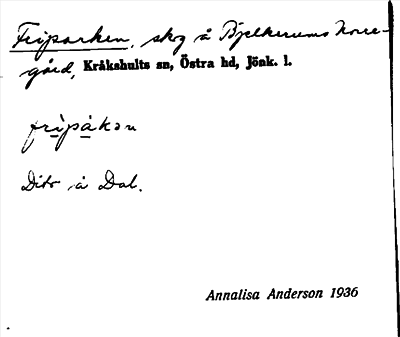 Friparken, skog å Bjelkerums Norre-
gård, Kråkshults sn, Östra hd, Jönk. l.
frìpàkən
Dito å Dal.
Annalisa Anderson 1936